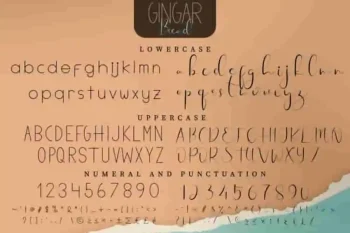 GINGAR
Bread
LOWERCASE
abcdefghijklmn abcdefghijklmn
opqrstuvwxyz opqrstuvwxyz
UPPERCASE
ABCDEFGHIJKLMN ABCDEFGHIJKLMN
OPQRSTUVWXYZ OPQRSTUVWXYZ
NUMERAL AND PUNCTUATION
1234567890 1234567890